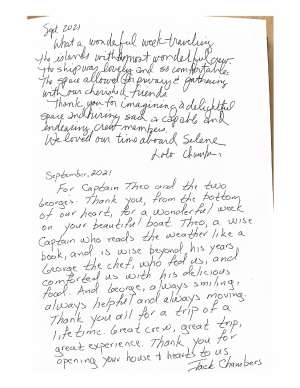 Sept 2021
What a wonderful week traveling
the islands with the most wonderful crew.
The ship was lovely and so comfortable.
The space allowed for privacy & gathering
with our cherished friends
Thank you for imagining a delightful
space and hiring such a capable and
endearing crew members.
We loved our time aboard Selene
Lolo Chambers
September, 2021
For Captain Theo and the two
Georges. Thank you, from the bottom
of our heart, for a wonderful week
on your beautiful boat. Theo, a wise
Captain who reads the weather like a
book, and is wise beyond his years,
George the chef, who fed us, and
comforted us with his delicious
food. And George, always smiling,
always helpful and always moving.
Thank you all for a trip of a
lifetime. Great crew, great trip,
great experience. Thank you for
opening your house & hearts to us.
Jack Chambers